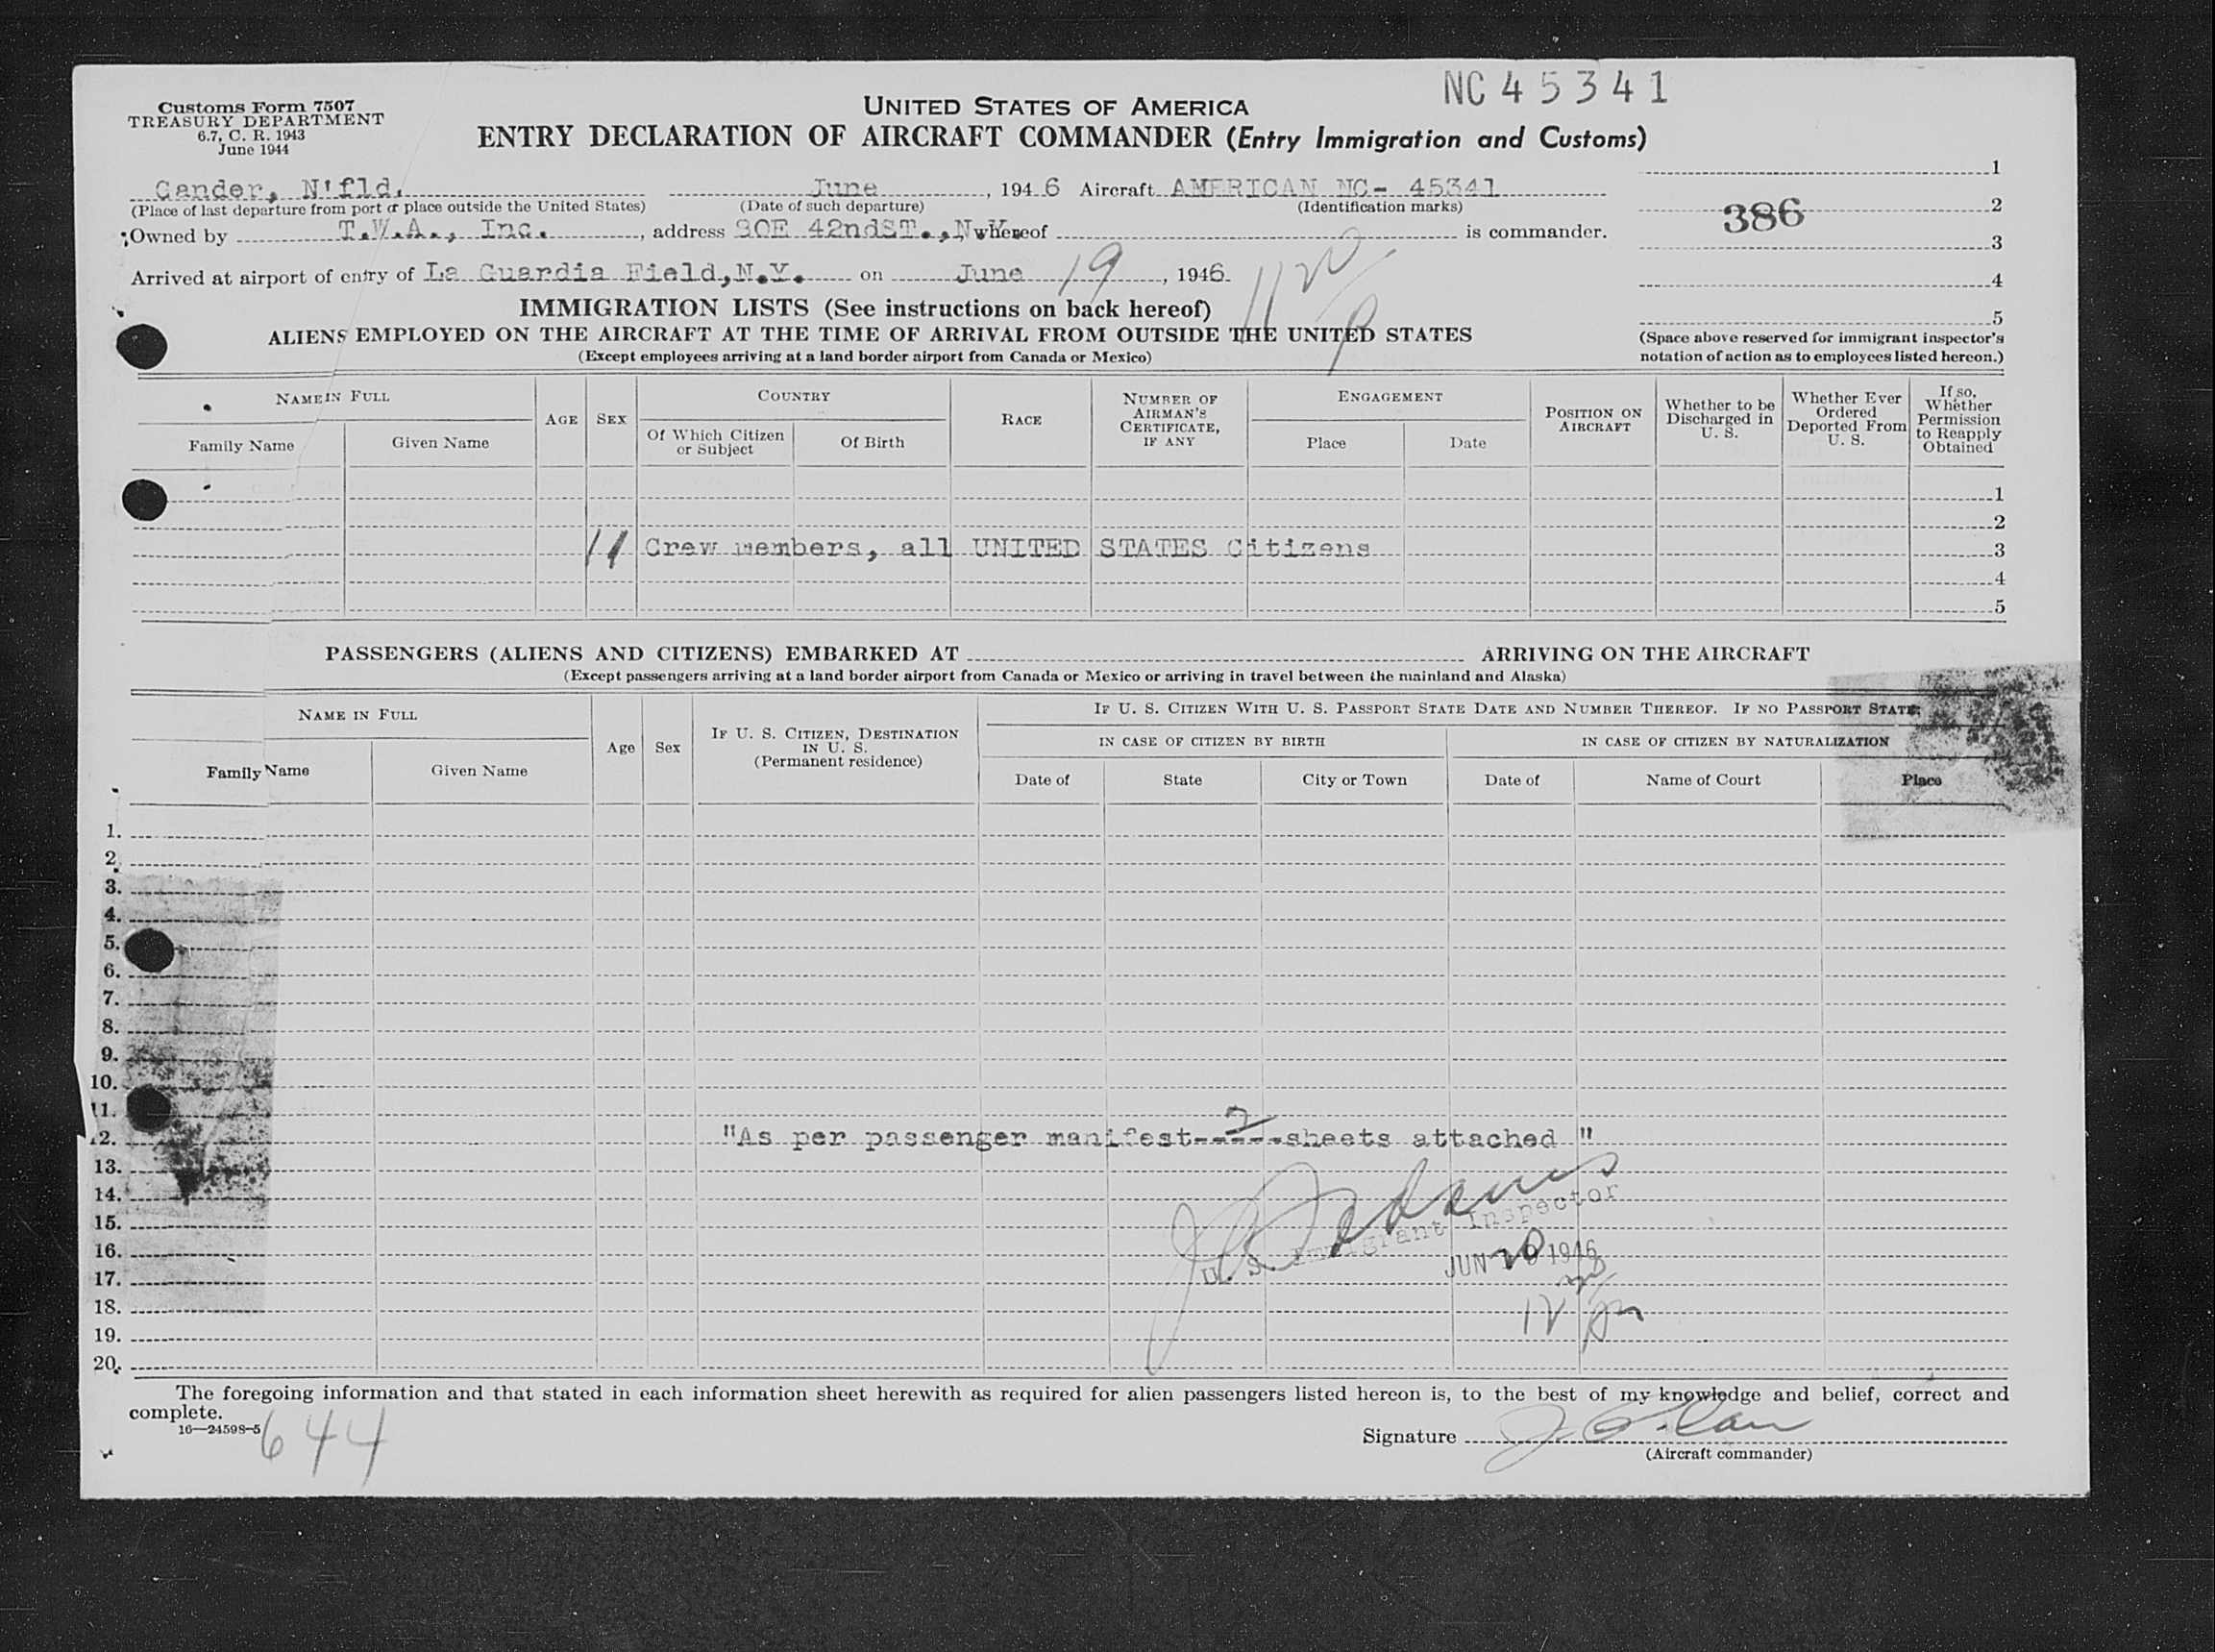 NC 45341
Customs Form 7507
TREASURY DEPARTMENT
6.7, C. R. 1943
June 1944
UNITED STATES OF AMERICA
ENTRY DECLARATION OF AIRCRAFT COMMANDER (Entry Immigration and Customs)
Gander, N'fld. June, 1946 Aircraft AMERICAN NC- 45341
(Place of last departure from port or place outside the United States) (Date of such departure) (Identification marks)
Owned by T.W.A., Inc., address 80E 42ndST.,N.Y. whereof is commander.
Arrived at airport of entry of La Guardia Field,N.Y. on June 19, 1946
1
2
386
3
4
5
(Space above reserved for immigrant inspector's
notation of action as to employees listed hereon.)
IMMIGRATION LISTS (See instructions on back hereof)
ALIENS EMPLOYED ON THE AIRCRAFT AT THE TIME OF ARRIVAL FROM OUTSIDE THE UNITED STATES
(Except employees arriving at a land border airport from Canada or Mexico)
NAME IN FULL
Family Name
Given Name
AGE
SEX
COUNTRY
Of Which Citizen or Subject
Of Birth
RACE
NUMBER OF AIRMAN'S CERTIFICATE, IF ANY
ENGAGEMENT
Place
Date
POSITION ON AIRCRAFT
Whether to be Discharged in U. S.
Whether Ever Ordered Deported From U. S.
If so, Whether Permission to Reapply Obtained
1
2
11 Crew members, all UNITED STATES Citizens 3
4
5
PASSENGERS (ALIENS AND CITIZENS) EMBARKED AT ARRIVING ON THE AIRCRAFT
(Except passengers arriving at a land border airport from Canada or Mexico or arriving in travel between the mainland and Alaska)
NAME IN FULL
Family Name
Given Name
Age
Sex
IF U. S. CITIZEN, DESTINATION IN U. S.
(Permanent residence)
IF U. S. CITIZEN WITH U. S. PASSPORT STATE DATE AND NUMBER THEREOF. IF NO PASSPORT STATE:
IN CASE OF CITIZEN BY BIRTH
IN CASE OF CITIZEN BY NATURALIZATION
Date of
State
City or Town
Date of
Name of Court
Place
1.
2.
3.
4.
5.
6.
7.
8.
9.
10.
11.
12. "As per passenger manifest--2--sheets attached "
13.
14.
15.
U. S. Immigrant Inspector
16.
JUN 20 1946
17.
18.
19.
20.
The foregoing information and that stated in each information sheet herewith as required for alien passengers listed hereon is, to the best of my knowledge and belief, correct and
complete.
16—24598-5
644
Signature
(Aircraft commander)